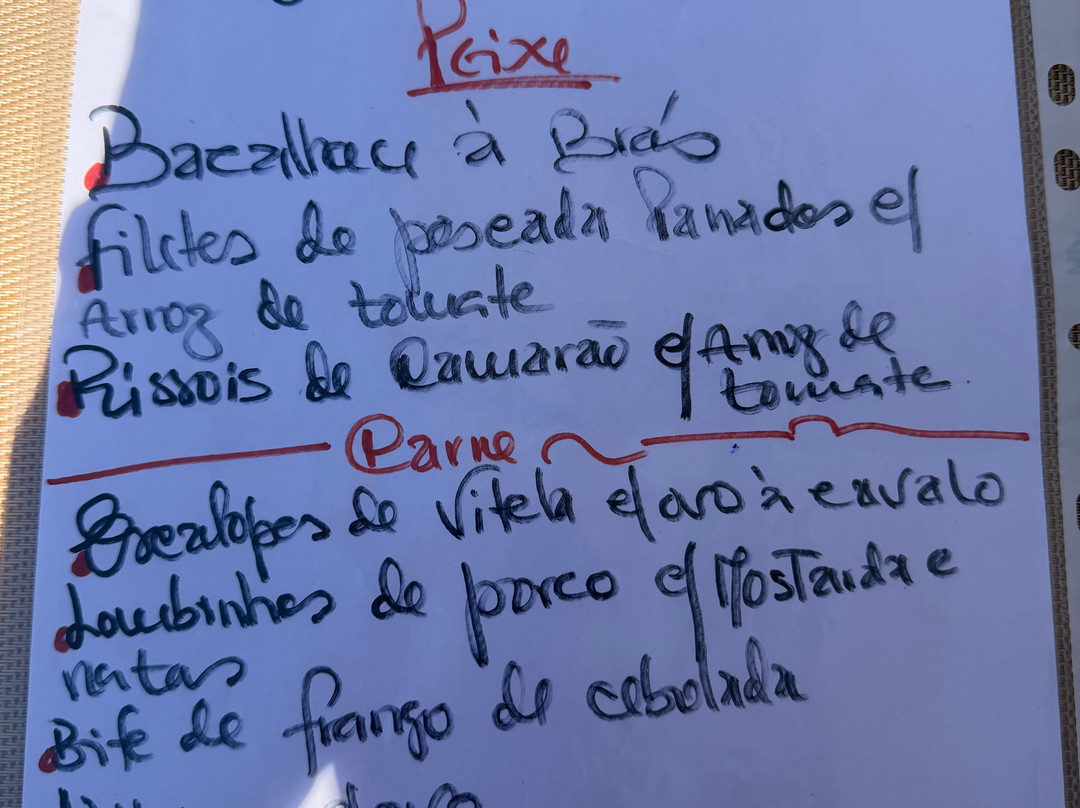 Peixe
Bacalhau à Brás
filetes de pescada Panados c/
Arroz de tomate
Rissois de Camarão c/ Arroz de
tomate.
Carne
Escalopes de Vitela c/ ovo à cavalo
Lombinhos de porco c/ Mostarda e
natas
Bife de frango de cebolada